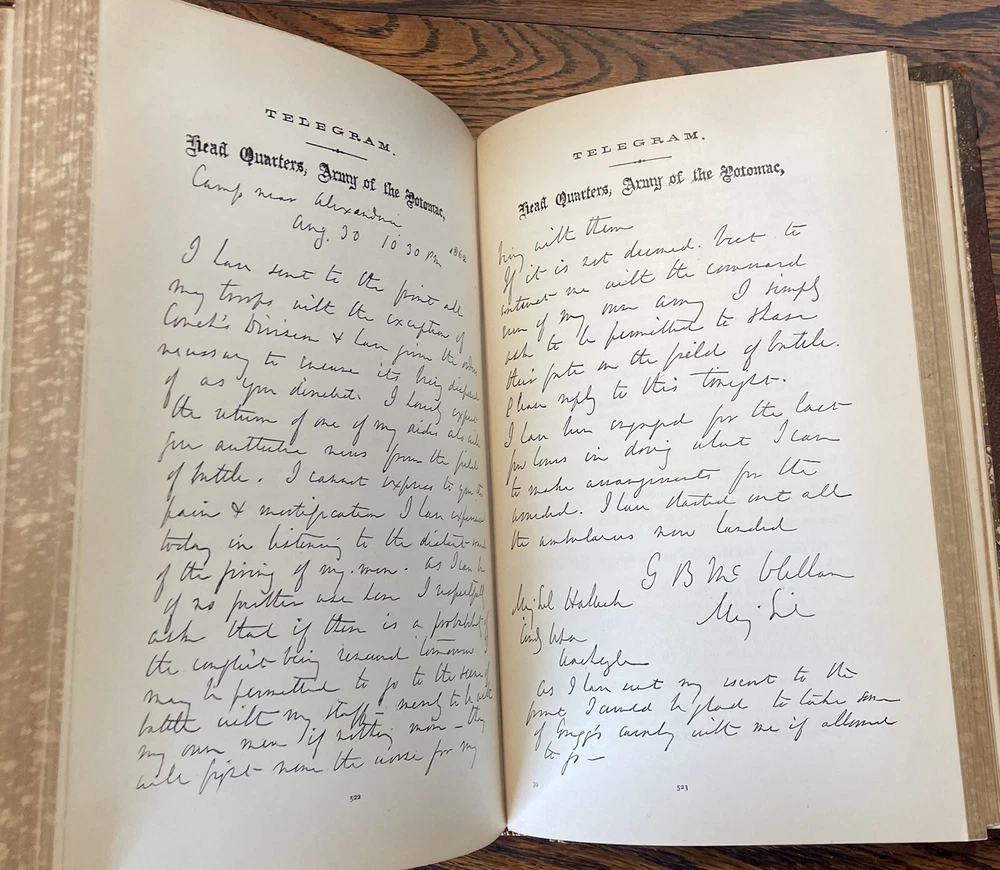 TELEGRAM.
Head Quarters, Army of the Potomac,
Camp near Alexandria
Aug. 30 10 30 PM 1862
I have sent to the front all
my troops with the exception of
Couch's Division & have given the orders
necessary to insure its being disposed
of as you directed. I hourly expect
the return of one of my aides who will
give authentic news from the field
of battle. I cannot express to you the
pain & mortification I have experienced
today in listening to the distant sound
of the firing of my men. As I can be
of no further use here I respectfully
ask that if there is a probability of
the conflict being renewed tomorrow I
may be permitted to go to the scene of
battle with my staff - merely to be with
my own men if nothing more - they
will fight none the worse for my
522
TELEGRAM.
Head Quarters, Army of the Potomac,
being with them
If it is not deemed best to
entrust me with the command
even of my own army I simply
ask to be permitted to share
their fate on the field of battle.
Please reply to this tonight.
I have been engaged for the last
few hours in doing what I can
to make arrangements for the
wounded. I have started out all
the ambulances now landed
G B McClellan
Maj Genl
Maj Genl Halleck
Comdg USA
Washington
As I have sent my escort to the
front I would be glad to take some
of Gregg's cavalry with me if allowed
to go -
523